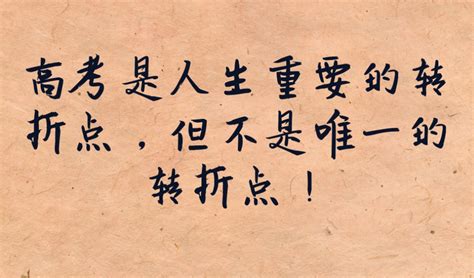 高考是人生重要的转
折点，但不是唯一的
转折点！